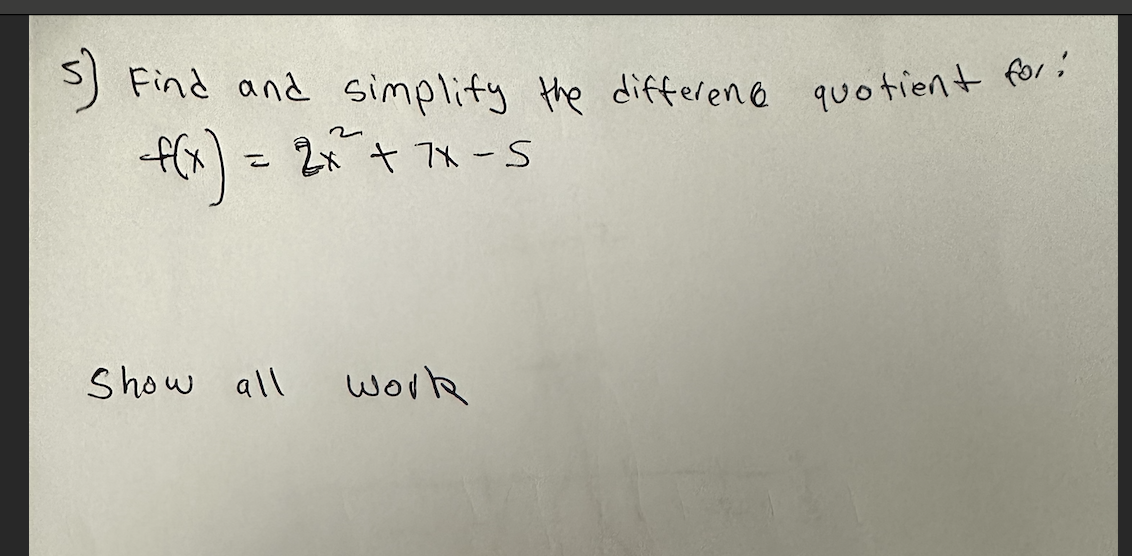 5) Find and simplify the difference quotient for:
f(x) = 2x² + 7x - 5
Show all work